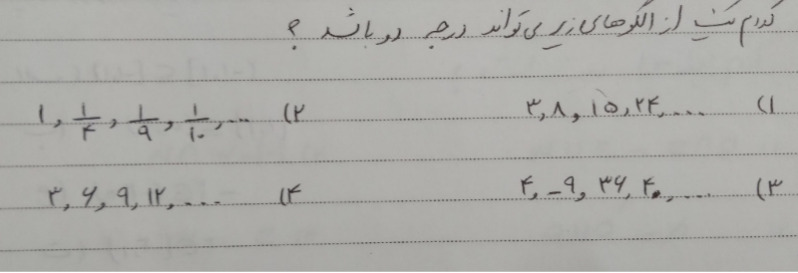 کدام یک از الگوهای زیر می‌تواند درجه دو باشد ؟
۱) ۳, ۸, ۱۵, ۲۴, ... ۲) ۱, ۱/۴, ۱/۹, ۱/۱۰, ...
۳) ۴, -۹, ۳۶, ۴۰, ... ۴) ۳, ۶, ۹, ۱۲, ...